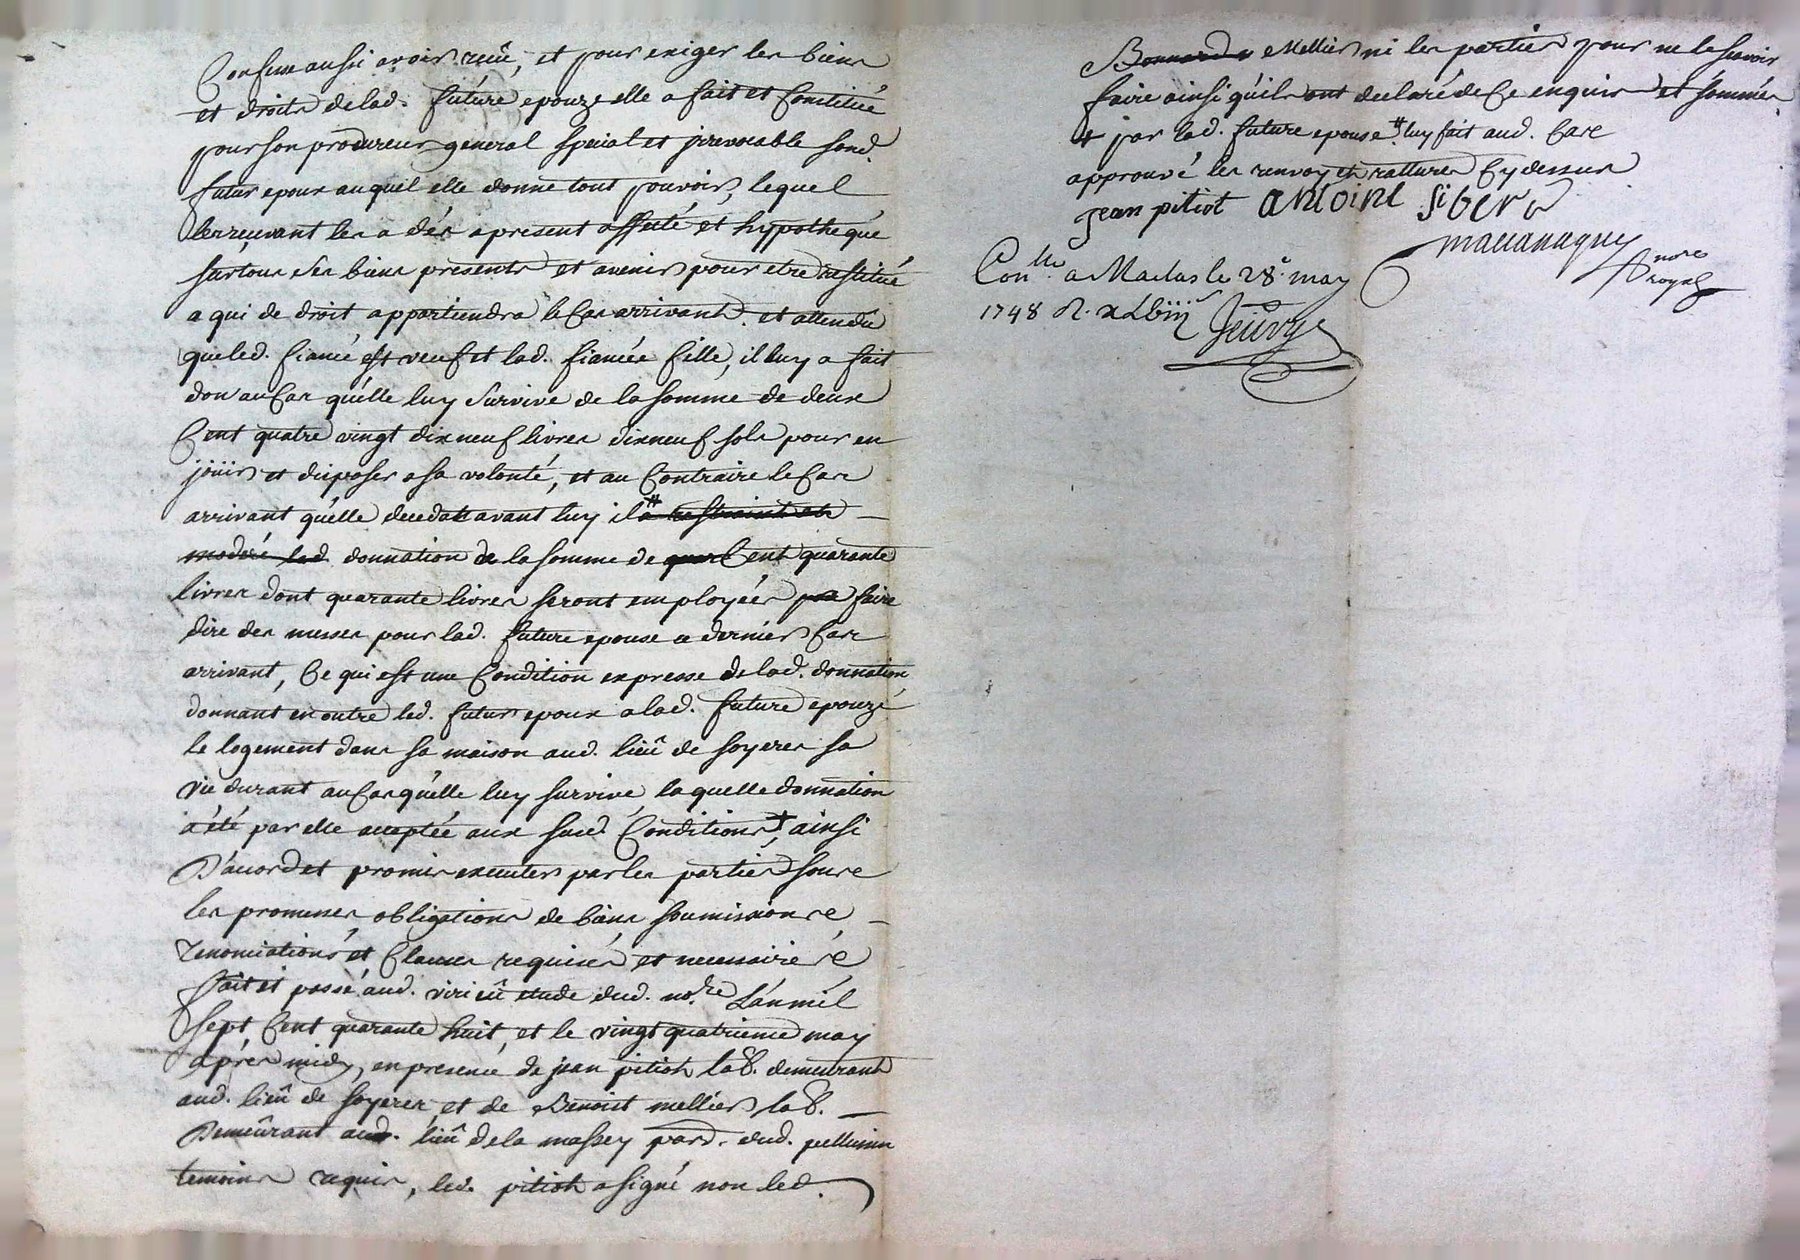 Confesse aussi avoir reçeû, et pour exiger les biens
et droits de lad. future epouze elle a fait et constitué
pour son procureur general special et jrrevocable sond.
futur epoux auquel elle donne tout pouvoir, lequel
les reçevant les a dés a present affecté et hypothequé
sur tous ses biens presents et avenir pour etre restitué
a qui de droit appartiendra le cas arrivant. et attendû
que led. fiancé est veuf et lad. fiancée fille, il luy a fait
don au cas qu'élle luy survive de la somme de deux
Cent quatre vingt dix neuf livres dixneuf sols pour en
joüir et disposer a sa volonté, et au Contraire le Cas
arrivant qu'élle decedat avant luy il # a restraint et
moderé lad. donnation de la somme de quar Cent quarante
livres dont quarante livres seront employées pr faire
dire des messes pour lad. future epouse ce dernier Cas
arrivant, Ce qui est une Condition expresse de lad. donnation
donnant en outre led. futur epoux a lad. future epouze
le logement dans sa maison aud. lieû de soyeres sa
vie durant au Cas qu'élle luy survive laquelle donnation
a été par elle acceptée aux susd. Conditions + ainsi
D'acord et promis executer par les parties sous
les promesses obligations de biens soumissions
renonciations et Clauses requises et necessaires
fait et passé aud. virieû etude dud. no.re L'an mil
sept Cent quarante huit, et le vingt quatrieme may
aprés midy, en presence de jean pitiot lab. demeurant
aud. lieû de soyeres et de Benoit mellier lab.
Demeûrant aud. lieû de la massey parr. dud. pellussin
temoins requis, led. pitiot a signé non led.
Bonnard Mellier ni les parties pour ne le sçavoir
faire ainsi qu'ils ont declaré de Ce enquis et sommés
+ par lad. future epouse # luy fait aud. Cas
approuvé les renvoy et rattures Cy dessus
jean pitiot antoine sibert
Con.lle a Maclas le 28.e may
1748 R.